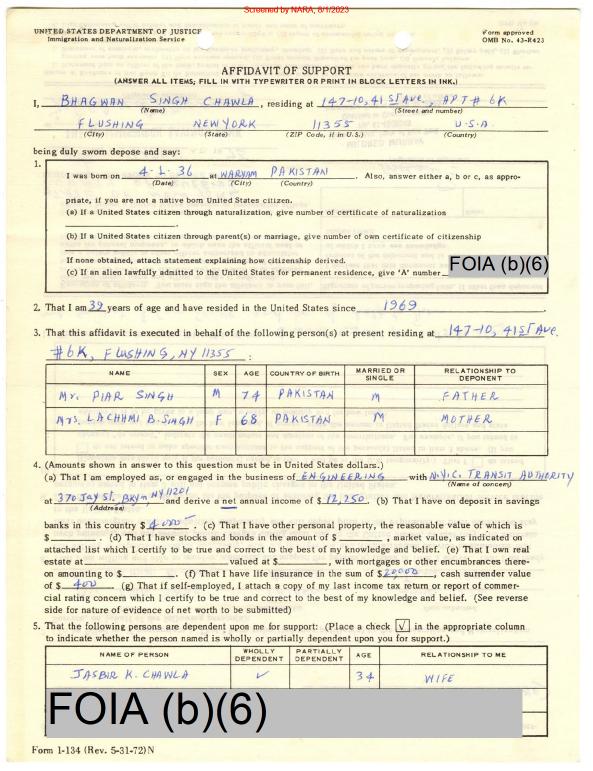 Screened by NARA, 8/1/2023
UNITED STATES DEPARTMENT OF JUSTICE
Immigration and Naturalization Service
Form approved
OMB No. 43-R423
AFFIDAVIT OF SUPPORT
(ANSWER ALL ITEMS; FILL IN WITH TYPEWRITER OR PRINT IN BLOCK LETTERS IN INK.)
I, BHAGWAN SINGH CHAWLA, residing at 147-10, 41 ST AVE, APT # 6K
(Name) (Street and number)
FLUSHING NEW YORK 11355 U.S.A
(City) (State) (ZIP Code, if in U.S.) (Country)
being duly sworn depose and say:
1.
I was born on 4-1-36 at WARYAM PAKISTAN. Also, answer either a, b or c, as appro-
(Date) (City) (Country)
priate, if you are not a native born United States citizen.
(a) If a United States citizen through naturalization, give number of certificate of naturalization
(b) If a United States citizen through parent(s) or marriage, give number of own certificate of citizenship
If none obtained, attach statement explaining how citizenship derived.
(c) If an alien lawfully admitted to the United States for permanent residence, give 'A' number FOIA (b)(6)
2. That I am 39 years of age and have resided in the United States since 1969.
3. That this affidavit is executed in behalf of the following person(s) at present residing at 147-10, 41 ST Ave.
#6K, FLUSHING, NY 11355:
NAME SEX AGE COUNTRY OF BIRTH MARRIED OR SINGLE RELATIONSHIP TO DEPONENT
Mr. PIAR SINGH M 74 PAKISTAN M FATHER
Mrs. LACHHMI B. SINGH F 68 PAKISTAN M MOTHER
4. (Amounts shown in answer to this question must be in United States dollars.)
(a) That I am employed as, or engaged in the business of ENGINEERING with N.Y.C. TRANSIT AUTHORITY
(Name of concern)
at 370 Jay St. BKlyn, NY 11201 and derive a net annual income of $ 12,250. (b) That I have on deposit in savings
(Address)
banks in this country $ 4000. (c) That I have other personal property, the reasonable value of which is
$ . (d) That I have stocks and bonds in the amount of $ , market value, as indicated on
attached list which I certify to be true and correct to the best of my knowledge and belief. (e) That I own real
estate at valued at $ , with mortgages or other encumbrances there-
on amounting to $ . (f) That I have life insurance in the sum of $ 20,000, cash surrender value
of $ 400 (g) That if self-employed, I attach a copy of my last income tax return or report of commer-
cial rating concern which I certify to be true and correct to the best of my knowledge and belief. (See reverse
side for nature of evidence of net worth to be submitted)
5. That the following persons are dependent upon me for support: (Place a check [√] in the appropriate column
to indicate whether the person named is wholly or partially dependent upon you for support.)
NAME OF PERSON WHOLLY DEPENDENT PARTIALLY DEPENDENT AGE RELATIONSHIP TO ME
JASBIR K. CHAWLA ✓ 34 WIFE
FOIA (b)(6)
Form I-134 (Rev. 5-31-72) N